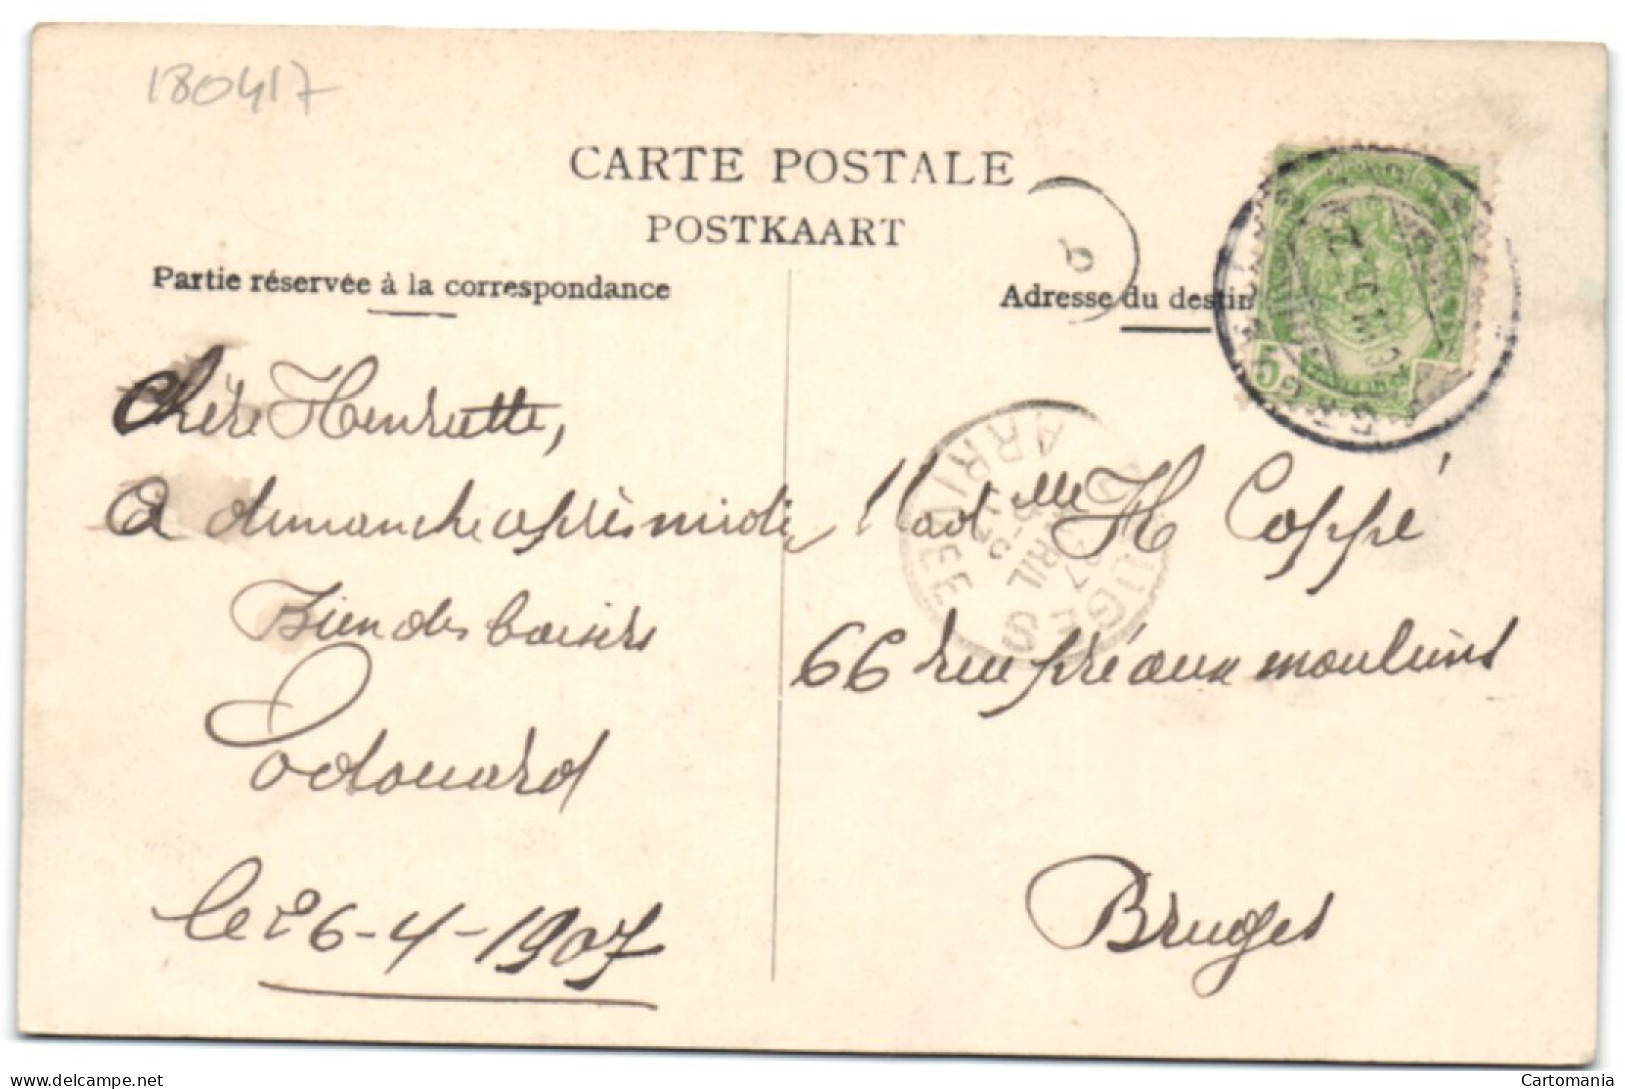 180417
CARTE POSTALE
POSTKAART
Partie réservée à la correspondance
Adresse du destin
5
Chère Henriette,
à dimanche après midi
Bien des baisers
Edouard
le 26-4-1907
Madelle H Coppé
66 rue pré aux moulins
Bruges
ARRIVEE
AVRIL
delcampe.net
Cartomania